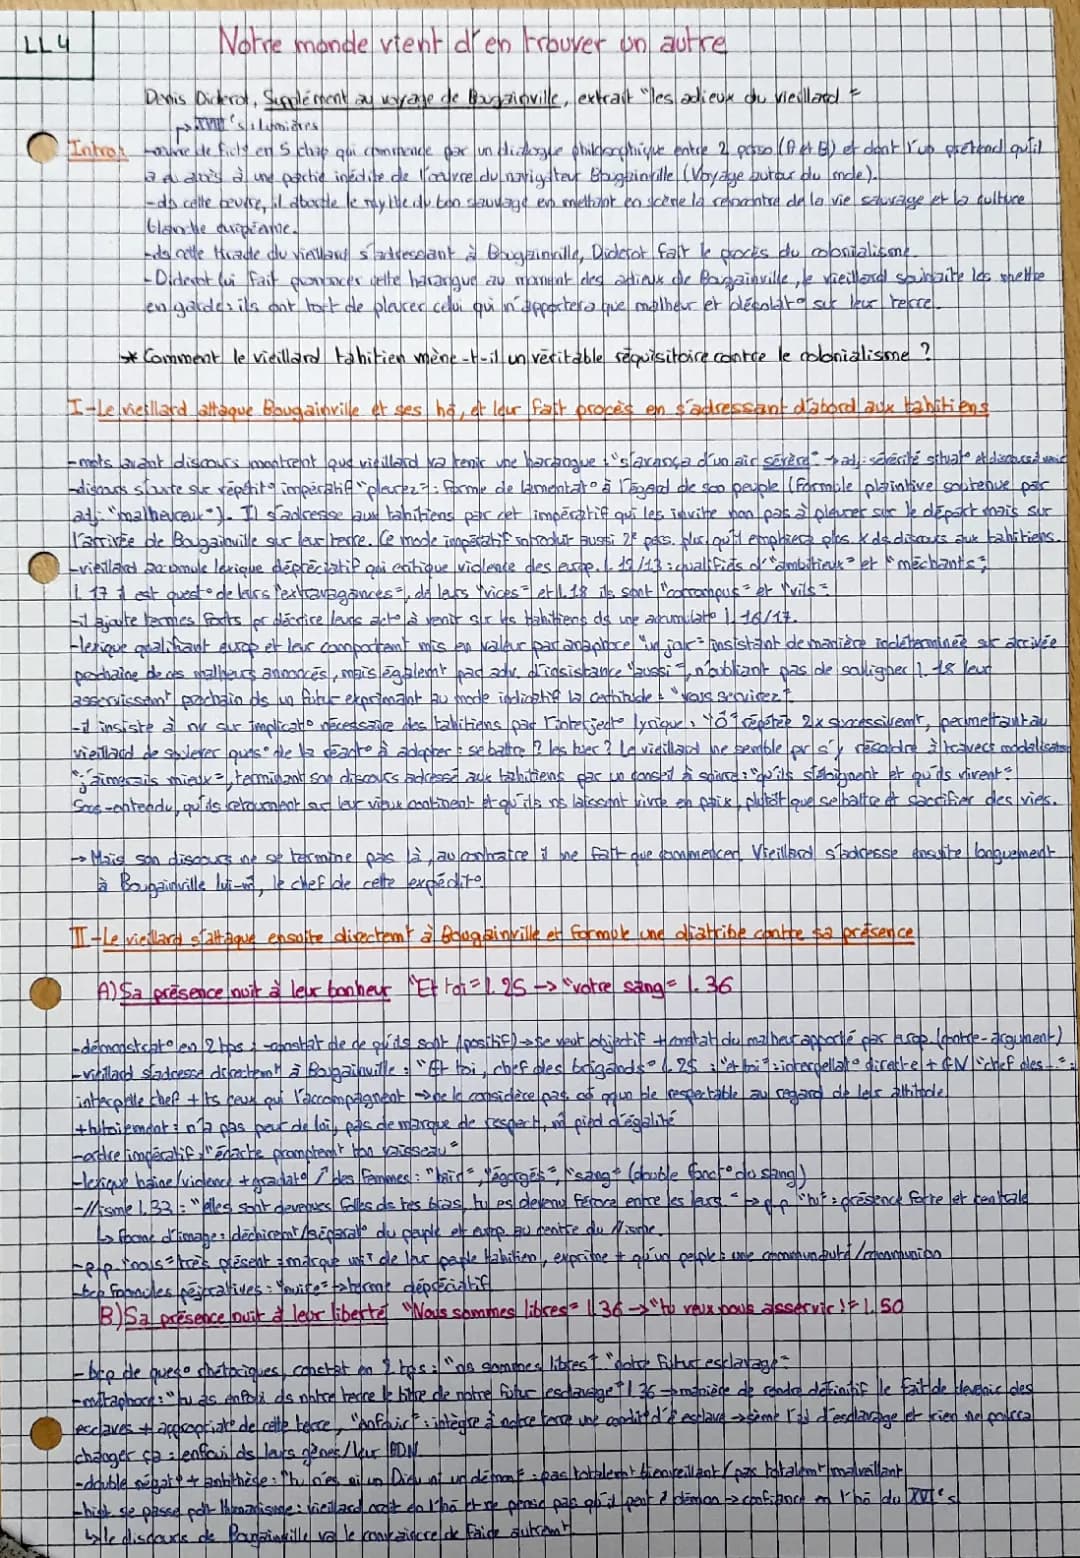 LL4
Notre monde vient d'en trouver un autre
Denis Diderot, Supplément au voyage de Bougainville, extrait "les adieux du vieillard"
→ XVIII's: lumières
Intro: -œuvre de fict° en 5 chap qui commence par un dialogue philosophique entre 2 perso (A et B) et dont l'un prétend qu'il
a eu accès à une partie inédite de l'œuvre du navigateur Bougainville (Voyage autour du monde).
-ds cette œuvre, il aborde le mythe du bon sauvage en mettant en scène la rencontre de la vie sauvage et la culture
blanche européenne.
-ds cette tirade du vieillard s'adressant à Bougainville, Diderot fait le procès du colonialisme.
-Diderot lui fait prononcer cette harangue au moment des adieux de Bougainville, le vieillard souhaite les mettre
en garde: ils ont tort de pleurer celui qui n'apportera que malheur et désolat° sur leur terre.
* Comment le vieillard tahitien mène-t-il un véritable réquisitoire contre le colonialisme ?
I-Le vieillard attaque Bougainville et ses hô, et leur fait procès en s'adressant d'abord aux tahitiens
-mots avant discours montrent que vieillard va tenir une harangue: "s'avança d'un air sévère" → adj: sévérité situat° et discours
-discours s'ouvre sur répétit° impératif "pleurez": forme de lamentat° à l'égard de son peuple (formule plaintive soutenue par
adj. "malheureux"). Il s'adresse aux tahitiens par cet impératif qui les invite non pas à pleurer sur le départ mais sur
l'arrivée de Bougainville sur leur terre. Ce mode impératif introduit aussi 2e pers. plur. qu'il emploiera plus. x ds discours aux tahitiens.
-vieillard accumule lexique dépréciatif qui critique violence des europ. l. 12/13: qualifiés d'"ambitieux" et "méchants";
l. 17 il est quest° de leurs "extravagances", de leurs "vices" et l.18 ils sont "corrompus" et "vils"
-il ajoute termes forts pr décrire leurs acte à venir sur les tahitiens ds une accumulat° l. 16/17.
-lexique qualifiant europ et leur comportemt mis en valeur par anaphore "un jour" insistant de manière indéterminée sur arrivée
prochaine de ces malheurs annoncés, mais égalemt par adv. d'insistance "aussi", n'oubliant pas de souligner l. 18 leur
asservissemt prochain ds un futur exprimant au mode indicatif la certitude: "vous servirez".
-il insiste à nv sur implicat° nécessaire des tahitiens par l'interject° lyrique: "Ô" répétée 2x successivemt, permettant au
vieillard de soulever quest° de la réact° à adopter: se battre ? les tuer ? Le vieillard ne semble pas s'y résoudre à travers modalisateur
"j'aimerais mieux", terminant son discours adressé aux tahitiens par un conseil à suivre: "qu'ils s'éloignent et qu'ils vivent".
Sous-entendu, qu'ils retournent sur leur vieux continent et qu'ils ns laissent vivre en paix, plutôt que se battre et sacrifier des vies.
→ Mais son discours ne se termine pas là, au contraire il ne fait que commencer. Vieillard s'adresse ensuite longuement
à Bougainville lui-m̂, le chef de cette expédit°.
II-Le vieillard s'attaque ensuite directemt à Bougainville et formule une diatribe contre sa présence
A) Sa présence nuit à leur bonheur "Et toi" l. 25 → "votre sang" l. 36
-démonstrat° en 2 tps: -constat de ce qu'ils sont (positif) → se veut objectif + constat du malheur apporté par europ. (contre-argument)
-vieillard s'adresse directemt à Bougainville: "Et toi, chef des brigands" l. 25: "et toi": interpellat° directe + GN "chef des ...":
interpelle chef + ts ceux qui l'accompagnent → ne le considère pas cô qqun de respectable au regard de leur attitude
+ tutoiement: n'a pas peur de lui, pas de marque de respect, m̂ pied d'égalité
-ordre impératif, "écarte promptemt ton vaisseau"
-lexique haine/violence + gradat° ↗ des femmes: "haïr", "égorgés", "sang" (double fonct° du sang)
-//isme l. 33: "elles sont devenues folles ds tes bras, tu es devenu féroce entre les leurs" → p.p "tu": présence forte et centrale
↳ forme d'image: déchiremt/séparat° du peuple et europ au centre du //isme.
-p.p. "nous" très présent: marque unit° de leur peuple tahitien, exprime + qu'un peuple: une communauté/communion
-bcp formules péjoratives: "nuire" → terme dépréciatif
B) Sa présence nuit à leur liberté "Nous sommes libres" l. 36 → "tu veux nous asservir !" l. 50
-bcp de quest° rhétoriques, constat en 2 tps: "ns sommes libres" + "notre futur esclavage"
-métaphore: "tu as enfoui ds notre terre le titre de notre futur esclavage" l. 36 → manière de rendre définitif le fait de devenir des
esclaves + appropriat° de cette terre, "enfouir": intègre à notre terre une condit° d'esclave → sème l'id d'esclavage et rien ne pourra
changer ça: enfoui ds leurs gènes/leur ADN
-double négat° + antithèse: "tu n'es ni un Dieu ni un démon": pas totalemt bienveillant / pas totalemt malveillant
-hist se passe pdt Humanisme: vieillard croit en l'hô et ne pense pas qu'il peut ê démon → confiance en l'hô du XVI's
↳ le discours de Bougainville va le convaincre de faire autremt